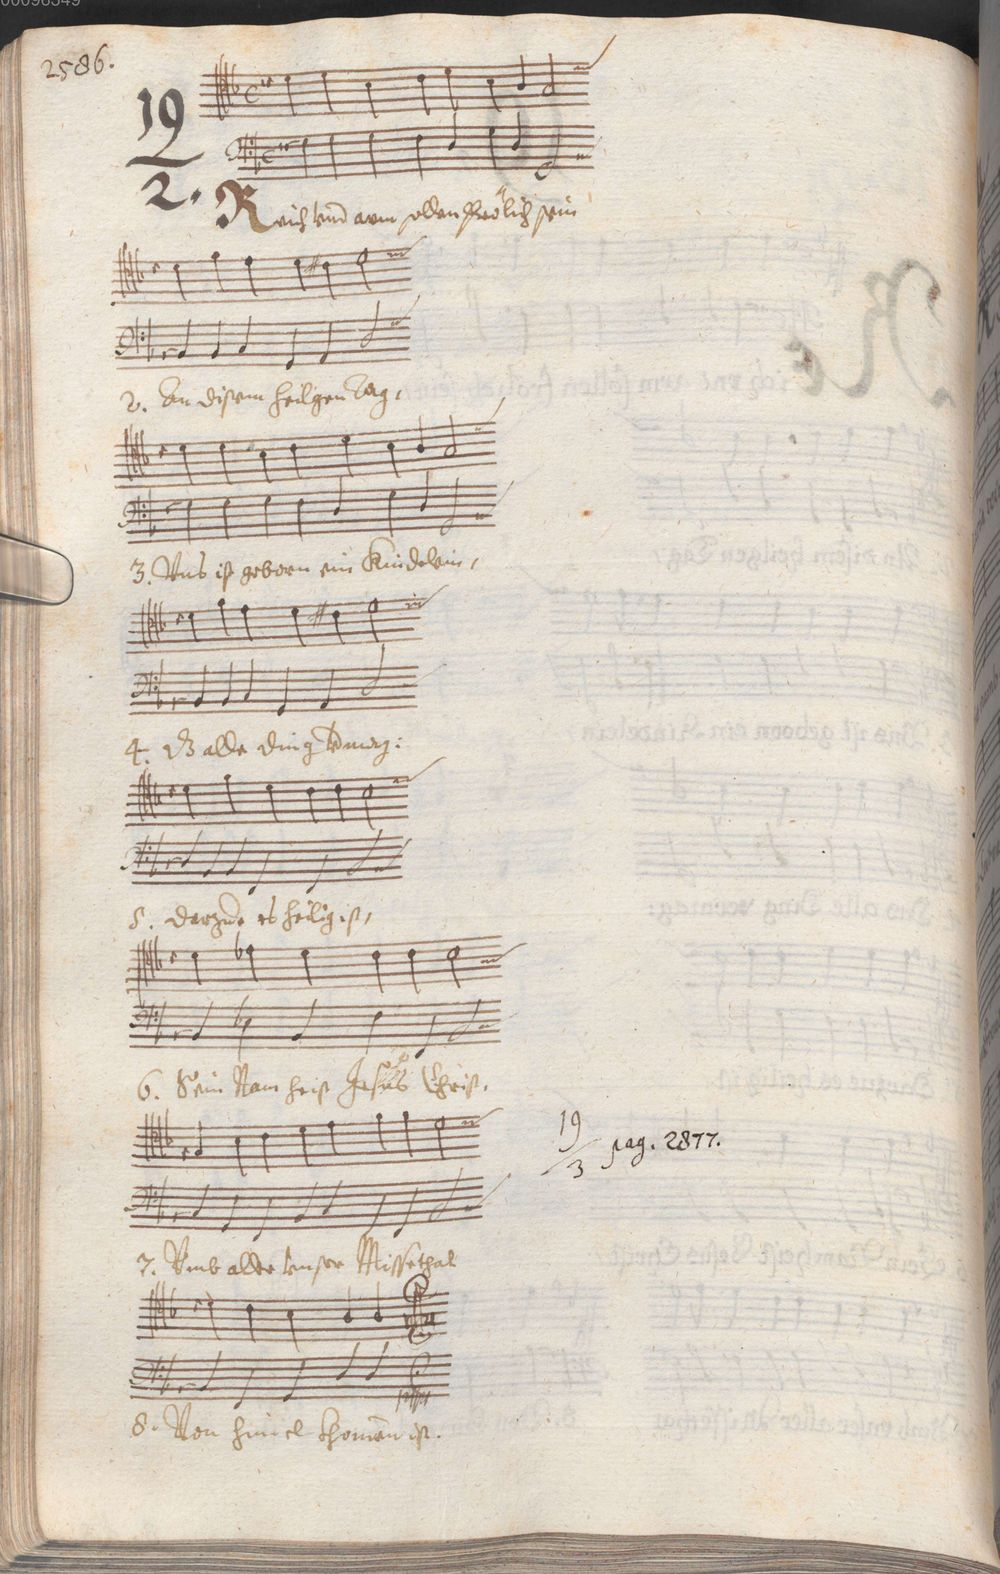 00096349
2586.
19
2.
Reich vnd arm sollen Frölich sein
2. An disem heiligen Tag,
3. Vns ist geborn ein Kindelein,
4. Dz alle ding vermag:
5. Darzue es heilig ist,
6. Sein Nam heist Jesus Christ,
19
3 pag. 2877.
7. Vmb aller vnser Missethat
8. Von himel khomen ist.